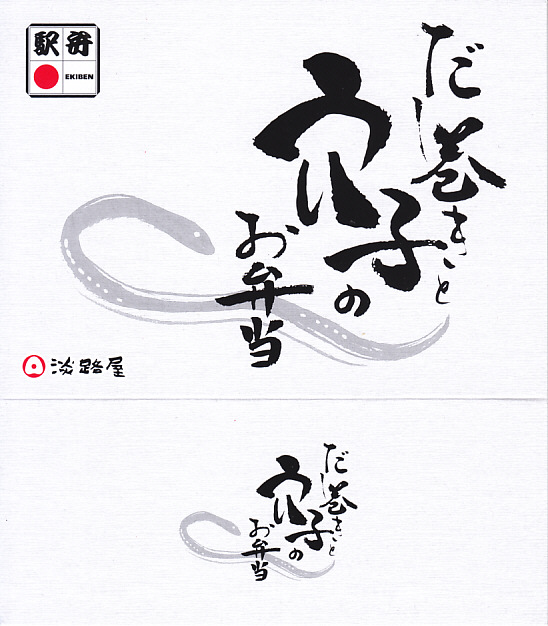 駅弁
EKIBEN
だし巻きと
穴子の
お弁当
淡路屋
だし巻きと
穴子の
お弁当